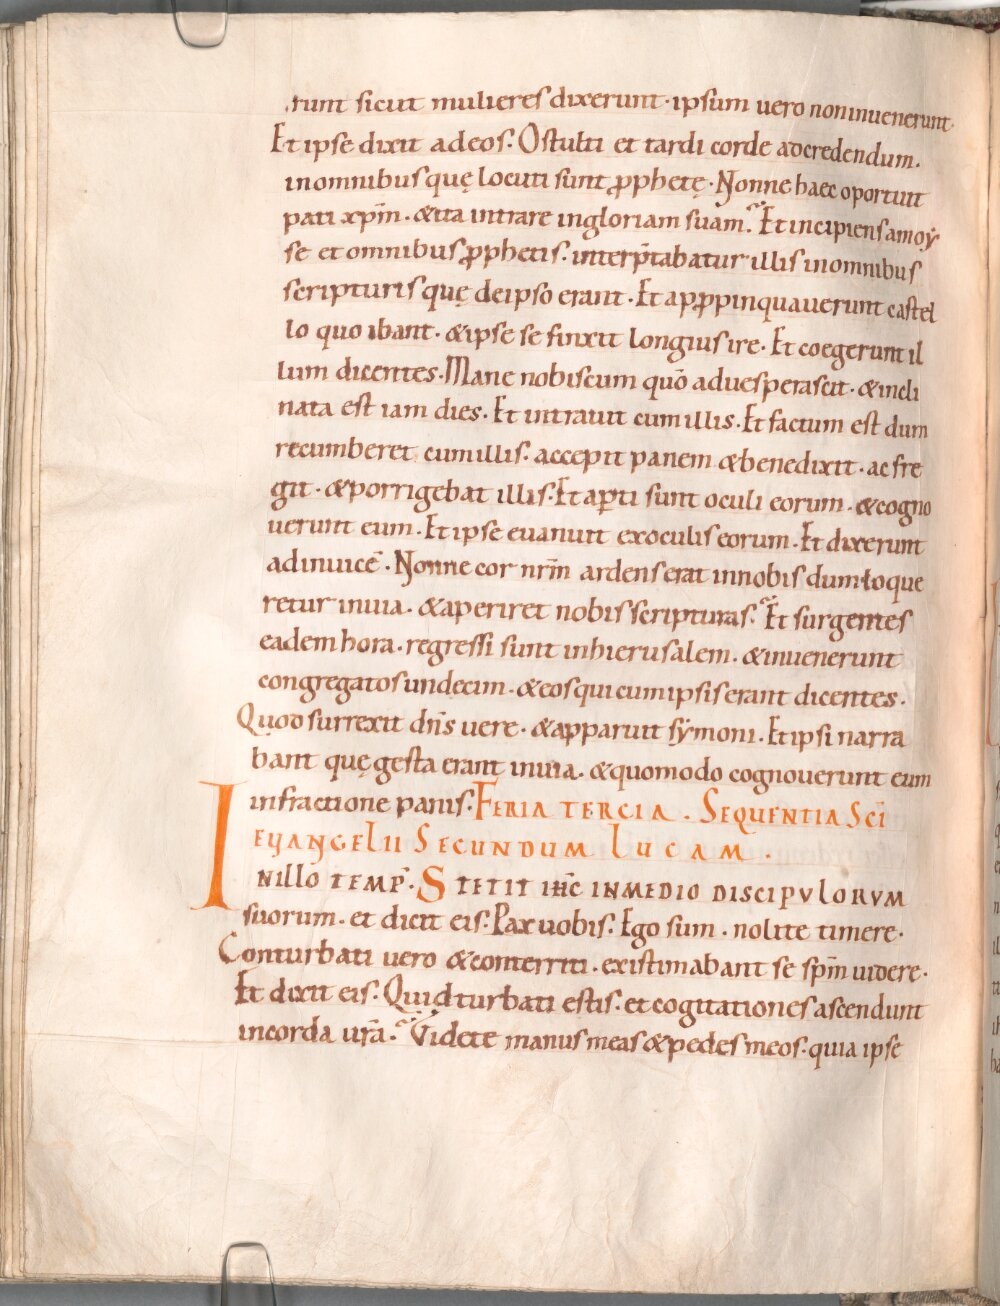 runt sicut mulieres dixerunt· ipsum uero noninuenerunt·
Et ipse dixit adeos· O stulti et tardi corde adcredendum.
inomnibus quę locuti sunt ꝓphetę· Nonne haec oportuit
pati xp̄m· & ita intrare ingloriam suam? Et incipiens amoẏ
se et omnibus ꝓphetis· interp̄tabatur illis inomnibus
scripturis quę deipso erant· Et apꝓpinquauerunt castel
lo quo ibant· & ipse se finxit longius ire· Et coegerunt il
lum dicentes· Mane nobiscum quō aduesperascit· & incli
nata est iam dies· Et intrauit cum illis· Et factum est dum
recumberet cum illis· accepit panem & benedixit· ac fre
git· & porrigebat illis· Et aꝑti sunt oculi eorum· & cogno
uerunt eum· Et ipse euanuit exoculis eorum· Et dixerunt
adinuicē· Nonne cor nr̄m ardens erat innobis dum loque
retur inuia· & aperiret nobis scripturas? Et surgentes
eadem hora· regressi sunt inhierusalem· & inuenerunt
congregatos undecim· & eos qui cum ipsis erant dicentes·
Quod surrexit dn̄s uere· & apparuit sẏmoni· Et ipsi narra
bant quę gesta erant inuia· & quomodo cognouerunt eum
infractione panis· FERIA TERCIA· SEQUENTIA SC̄I
EUANGELII SECUNDUM LUCAM·
INILLO TEMP̄· STETIT IH̄C INMEDIO DISCIPVLORVM
suorum· et dicit eis· Pax uobis· Ego sum· nolite timere·
Conturbati uero & conterriti· existimabant se sp̄m uidere·
Et dixit eis· Quid turbati estis· et cogitationes ascendunt
incorda ur̄a? Videte manus meas & pedes meos· quia ipse